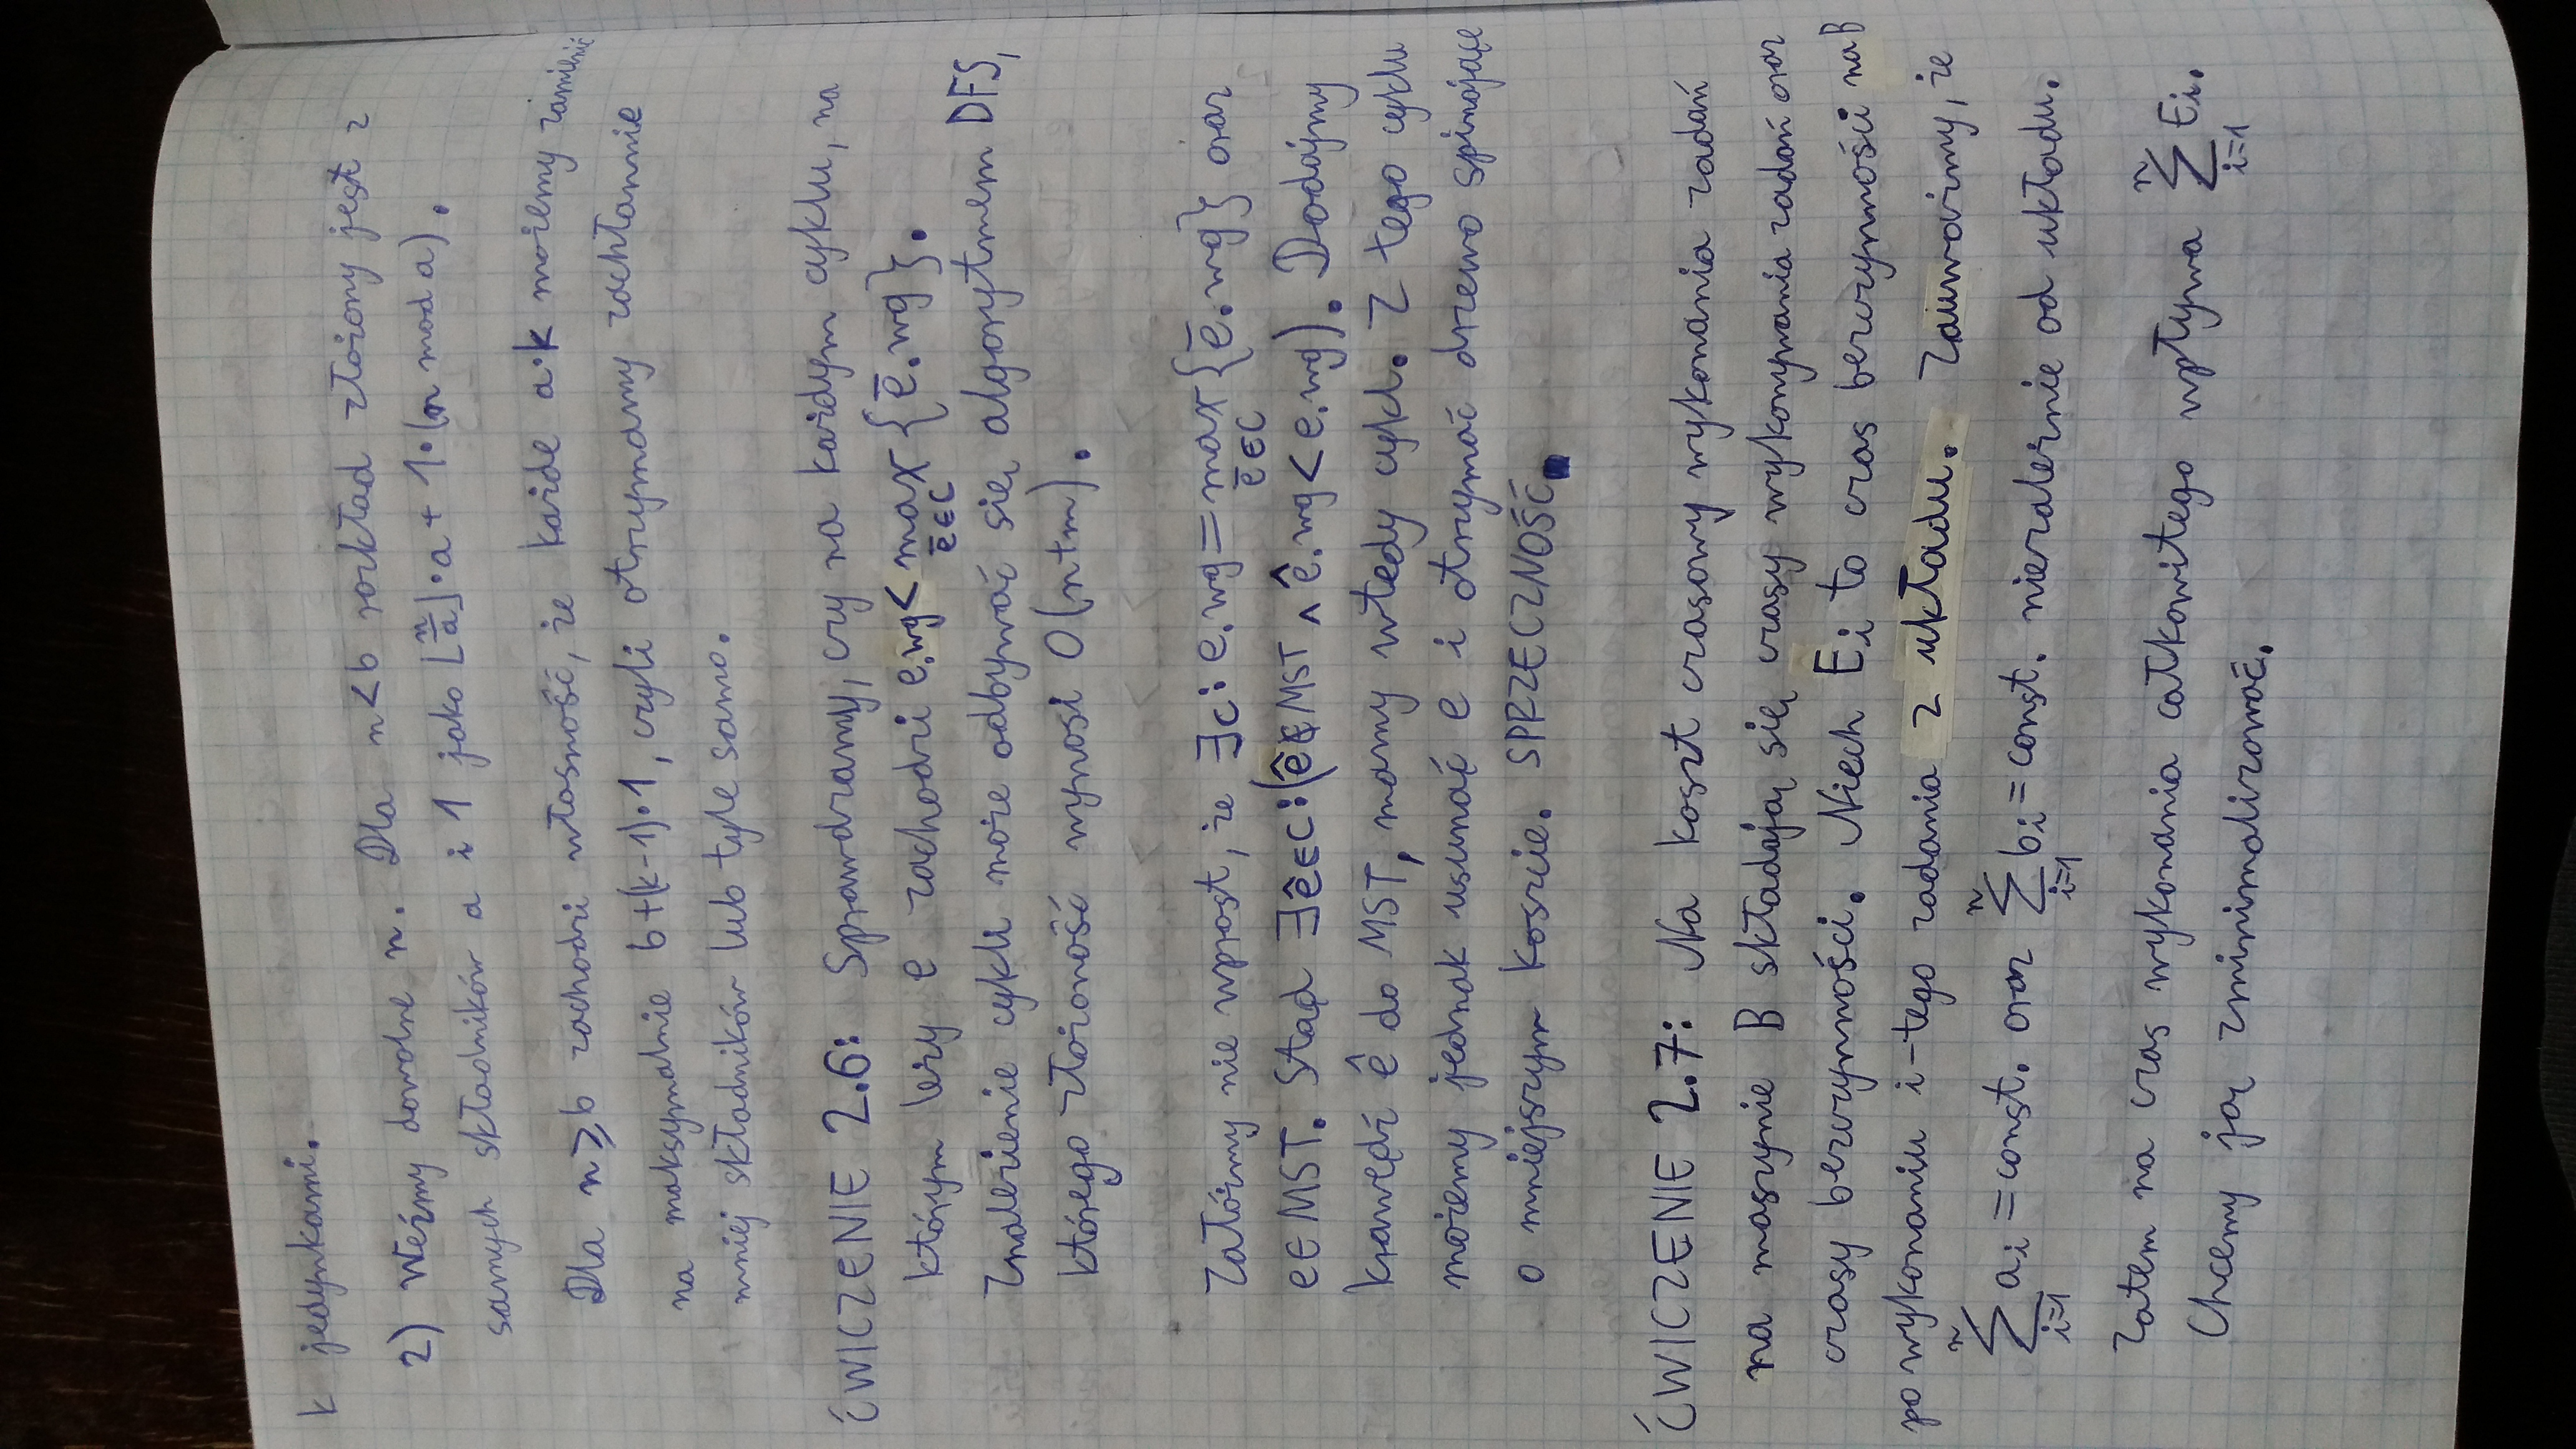 k jedynkami.
2) Weźmy dowolne n. Dla n<b rozkład złożony jest z
samych składników a i 1 jako ⌊n/a⌋·a + 1·(n mod a).
Dla n≥b zachodzi własność, że każde a·k możemy zamienić
na maksymalnie b+(k-1)·1, czyli otrzymamy zachłannie
mniej składników lub tyle samo.
ĆWICZENIE 2.6: Sprawdzamy, czy na każdym cyklu, na
którym leży e zachodzi e.wg < max {ē.wg}.
ē∈C
Znalezienie cykli może odbywać się algorytmem DFS,
którego złożoność wynosi O(n+m).
Załóżmy nie wprost, że ∃c: e.wg = max {ē.wg} oraz
ē∈C
e∈MST. Stąd ∃ê∈C:(ê∉MST ∧ ê.wg < e.wg). Dodajmy
krawędź ê do MST, mamy wtedy cykl. Z tego cyklu
możemy jednak usunąć e i otrzymać drzewo spinające
o mniejszym koszcie. SPRZECZNOŚĆ.
ĆWICZENIE 2.7: Na koszt czasowy wykonania zadań
na maszynie B składają się czasy wykonywania zadań oraz
czasy bezczynności. Niech Ei to czas bezczynności na B
po wykonaniu i-tego zadania z układu. Zauważmy, że
n∑i=1 ai = const. oraz n∑i=1 bi = const. niezależnie od układu.
Zatem na czas wykonania całkowitego wpływa n∑i=1 Ei.
Chcemy ją zminimalizować.